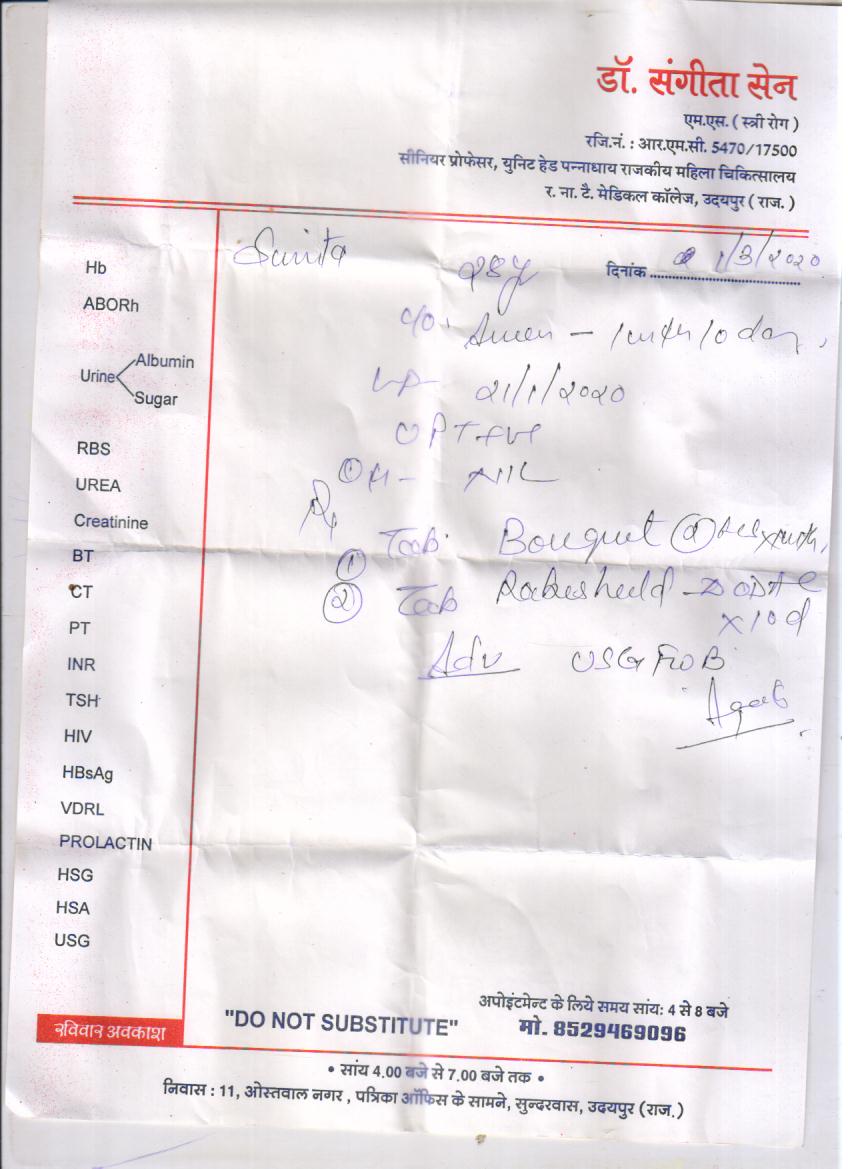 डॉ. संगीता सेन
एम.एस. ( स्त्री रोग )
रजि.नं. : आर.एम.सी. 5470/17500
सीनियर प्रोफेसर, युनिट हेड पन्नाधाय राजकीय महिला चिकित्सालय
र. ना. टै. मेडिकल कॉलेज, उदयपुर ( राज. )
Sunita 28y दिनांक 1/3/2020
C/O.
21/1/2020
UPT +ve
NIL
Tab. Bouquet
Tab
x 10d
Adv USG
Hb
ABORh
Urine Albumin
Sugar
RBS
UREA
Creatinine
BT
CT
PT
INR
TSH
HIV
HBsAg
VDRL
PROLACTIN
HSG
HSA
USG
रविवार अवकाश
"DO NOT SUBSTITUTE"
अपोइंटमेन्ट के लिये समय सांय: 4 से 8 बजे
मो. 8529469096
• सांय 4.00 बजे से 7.00 बजे तक •
निवास : 11, ओस्तवाल नगर , पत्रिका ऑफिस के सामने, सुन्दरवास, उदयपुर (राज.)